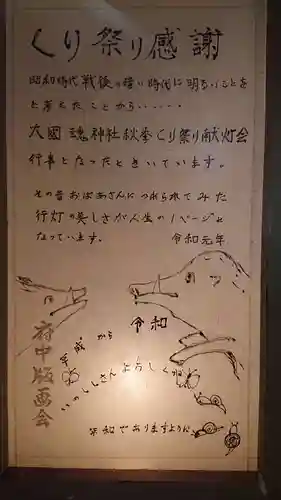 くり祭り感謝
昭和時代戦後の暗い時代に明るいことを
と考えたことから・・・・・
大國魂神社秋季くり祭り献灯会
行事となったときいています。
その昔おばあさんにつれられてみた
行灯の美しさが人生の1ページと
なっています。 令和元年
平成から 令和
いのししさんよろしくね
平和でありますように
府中版画会